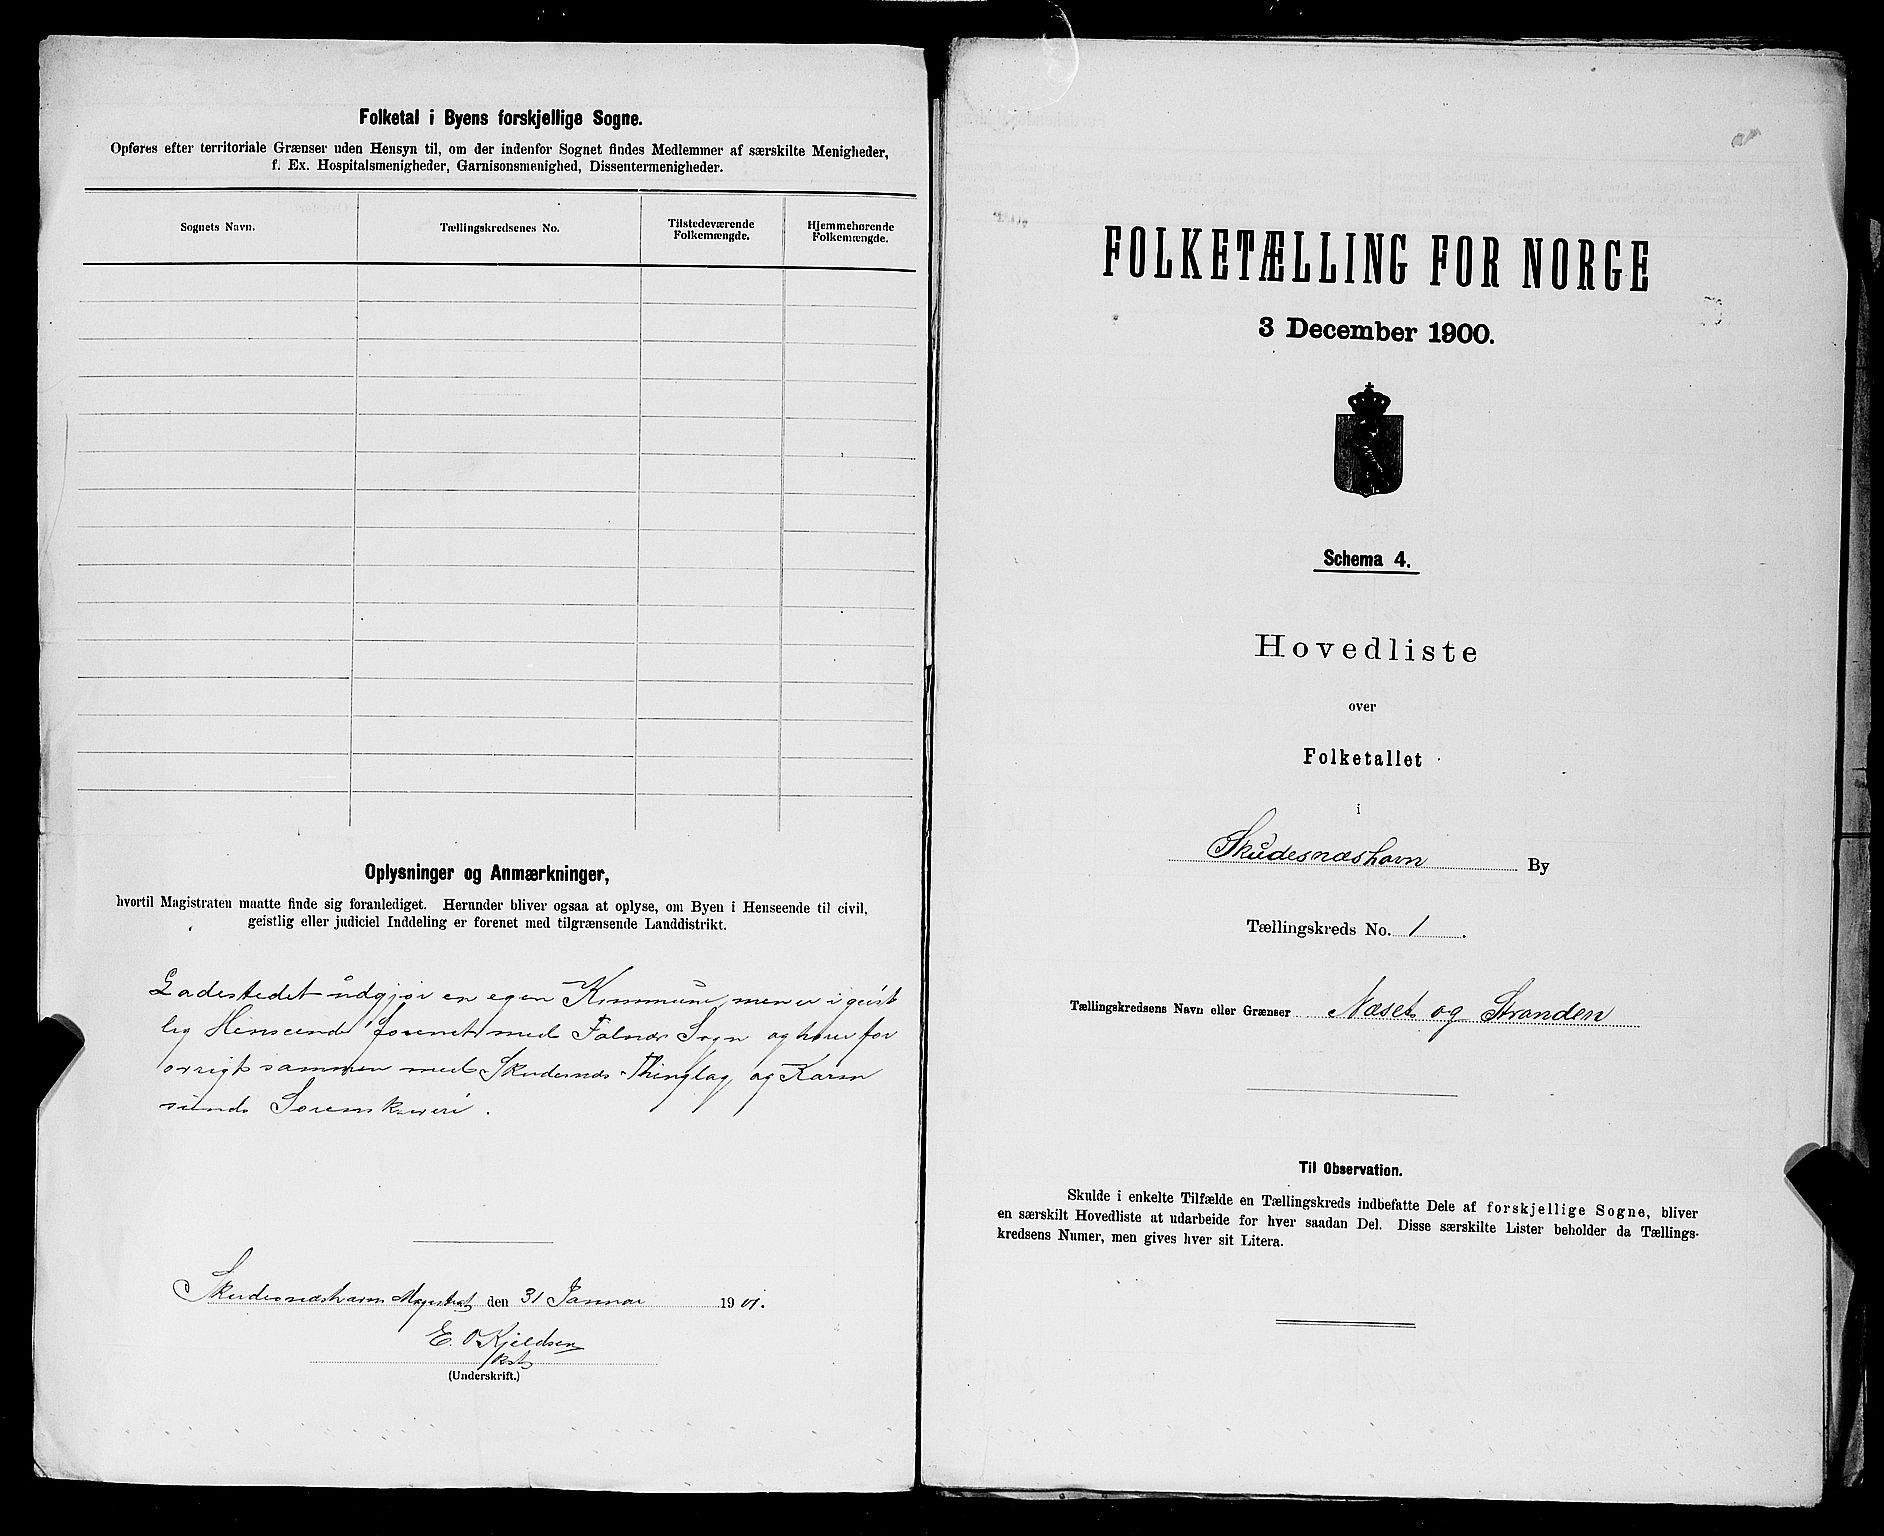 Folketal i Byens forskjellige Sogne.
Opføres efter territoriale Grænser uden Hensyn til, om der indenfor Sognet findes Medlemmer af særskilte Menigheder,
f. Ex. Hospitalsmenigheder, Garnisonsmenighed, Dissentermenigheder.
Sognets Navn.
Tællingskredsenes No.
Tilstedeværende
Folkemængde.
Hjemmehørende
Folkemængde.
Oplysninger og Anmærkninger,
hvortil Magistraten maatte finde sig foranlediget. Herunder bliver ogsaa at oplyse, om Byen i Henseende til civil,
geistlig eller judiciel Inddeling er forenet med tilgrænsende Landdistrikt.
Ladestedet udgjør en egen Kommune, men er i geist
lig Henseende forenet med Falnæs Sogn og hører for
øvrigt sammen med Skudesnæs Thinglag og Karm
sunds Sorenskriveri.
Skudesnæshavn Magistrat den 31 Januar 1901.
E. O Kjeldsen
(Underskrift.)
FOLKETÆLLING FOR NORGE
3 December 1900.
Schema 4.
Hovedliste
over
Folketallet
i
Skudesnæshavn By
Tællingskreds No. 1.
Tællingskredsens Navn eller Grænser Næset og Stranden
Til Observation.
Skulde i enkelte Tilfælde en Tællingskreds indbefatte Dele af forskjellige Sogne, bliver
en særskilt Hovedliste at udarbeide for hver saadan Del. Disse særskilte Lister beholder da Tællings-
kredsens Numer, men gives hver sit Litera.